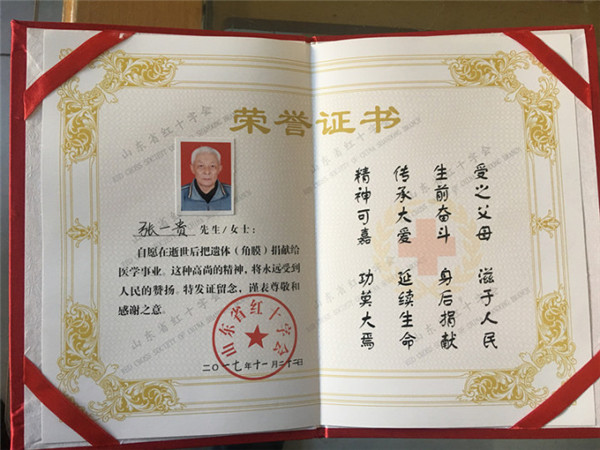 荣誉证书
张一贵 先生/女士：
自愿在逝世后把遗体（角膜）捐献给
医学事业。这种高尚的精神，将永远受到
人民的赞扬。特发证留念，谨表尊敬和
感谢之意。
山东省红十字会
二〇一七年十一月二十二日
受之父母 滋于人民
生前奋斗 身后捐献
传承大爱 延续生命
精神可嘉 功莫大焉
山东省红十字会
RED CROSS SOCIETY OF CHINA SHANDONG BRANCH